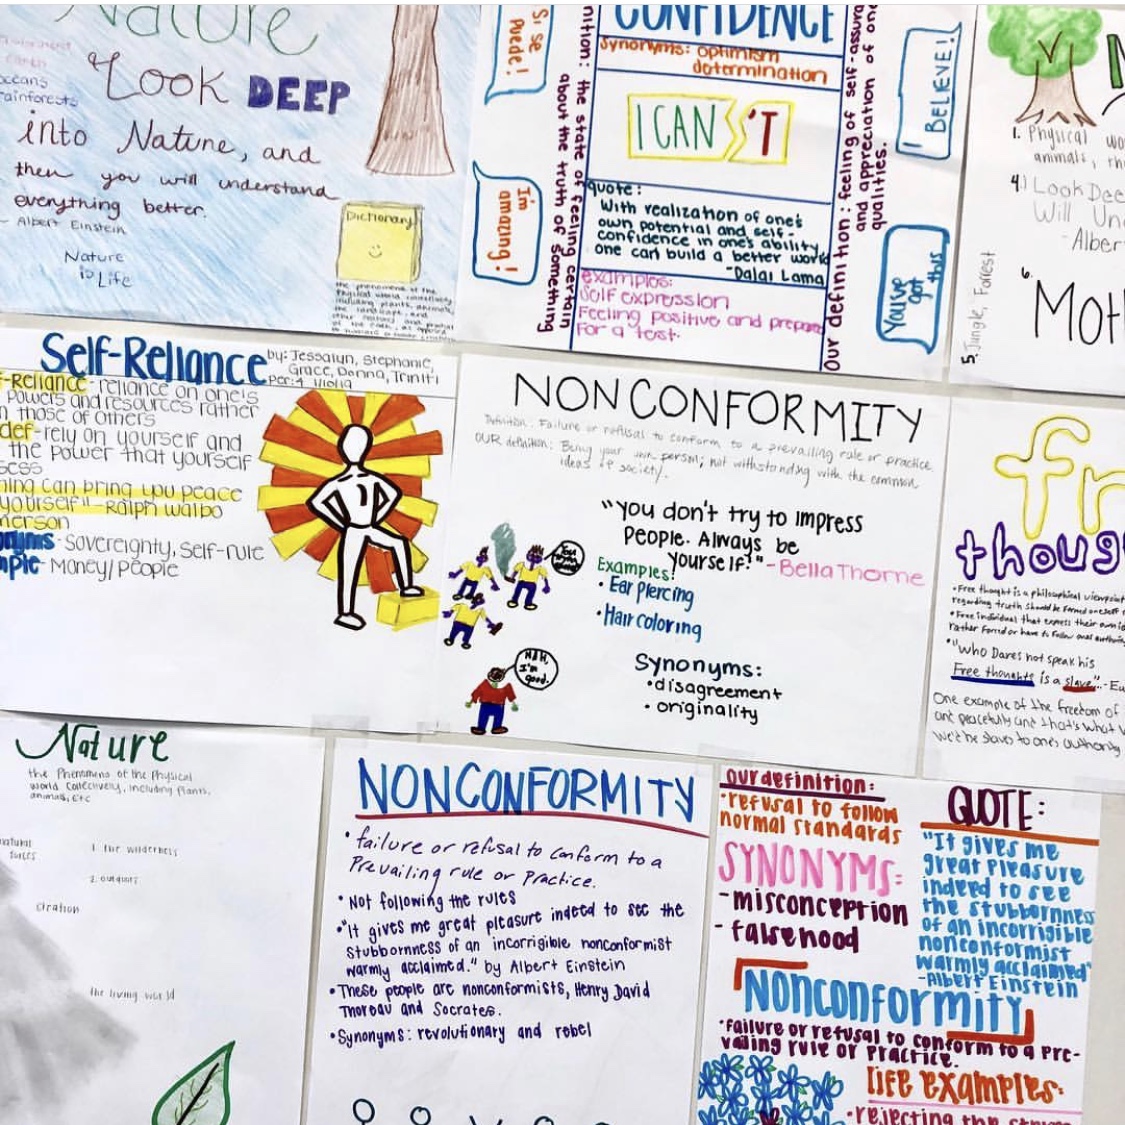 Nature
Look DEEP
into Nature, and
then you will understand
everything better.
- Albert Einstein
Nature
is Life
oceans
rainforests
Dictionary
Si se
Puede!
I'm
amazing!
nition: the state of feeling certain
about the truth of something
CONFIDENCE
Synonyms: optimism
determination
I CAN 'T
quote:
With realization of one's
own potential and self-
confidence in one's ability,
one can build a better world
-Dalai Lama
examples:
Self expression
Feeling positive and prepare
For a test.
Our definition: feeling of self-assura
and appreciation of one
qualities.
I BELIEVE!
You've
got this
1. Physical wo
animals, th
4.) Look Dee
Will Un
-Alber
6.
MOT
5. Jungle, Forrest
Self-Reliance
by: Jessalyn, Stephanie,
Grace, Donna, Triniti
Per: 4 1/10/19
-Reliance-reliance on one's
powers and resources rather
n those of others
def-rely on yourself and
the power that yourself
sess
hing can bring you peace
yourself"-Ralph Walbo
merson
nyms-Sovereignty, Self-rule
mple-Money/People
NONCONFORMITY
Definition: Failure or refusal to conform to a prevailing rule or practice
OUR definition: Being your own person; not withstanding with the common
ideas of society.
"You don't try to impress
People. Always be
yourself!" -Bella Thorne
Examples:
• Ear Piercing
• Hair coloring
Synonyms:
• disagreement
• originality
NAH,
I'm
good.
fr
thoug
• Free thought is a philosophical viewpoint
regarding truth should be formed
• Free individual that express their own
rather forced or have to follow ones
• "Who Dares not speak his
Free thoughts is a slave".-Eu
One example of the freedom of
are peacefully and that's what
we'll be slaves to one's authority
Nature
the Phenomena of the Physical
world collectively, including plants,
animals, etc
natural
1. the wilderness
2. outdoors
the living world
NONCONFORMITY
• failure or refusal to conform to a
Prevailing rule or Practice.
• Not following the rules
• "It gives me great pleasure indeed to see the
Stubbornness of an incorrigible nonconformist
warmly acclaimed." by Albert Einstein
• These people are nonconformists, Henry David
Thoreau and Socrates.
• Synonyms: revolutionary and rebel
our definition:
• refusal to follow
normal standards
SYNONYMS:
- misconception
- falsehood
QUOTE:
"It gives me
great pleasure
indeed to see
the stubbornness
of an incorrigible
nonconformist
warmly acclaimed"
-Albert Einstein
Nonconformity
• failure or refusal to conform to a pre-
vailing rule or practice.
life examples:
• rejecting the